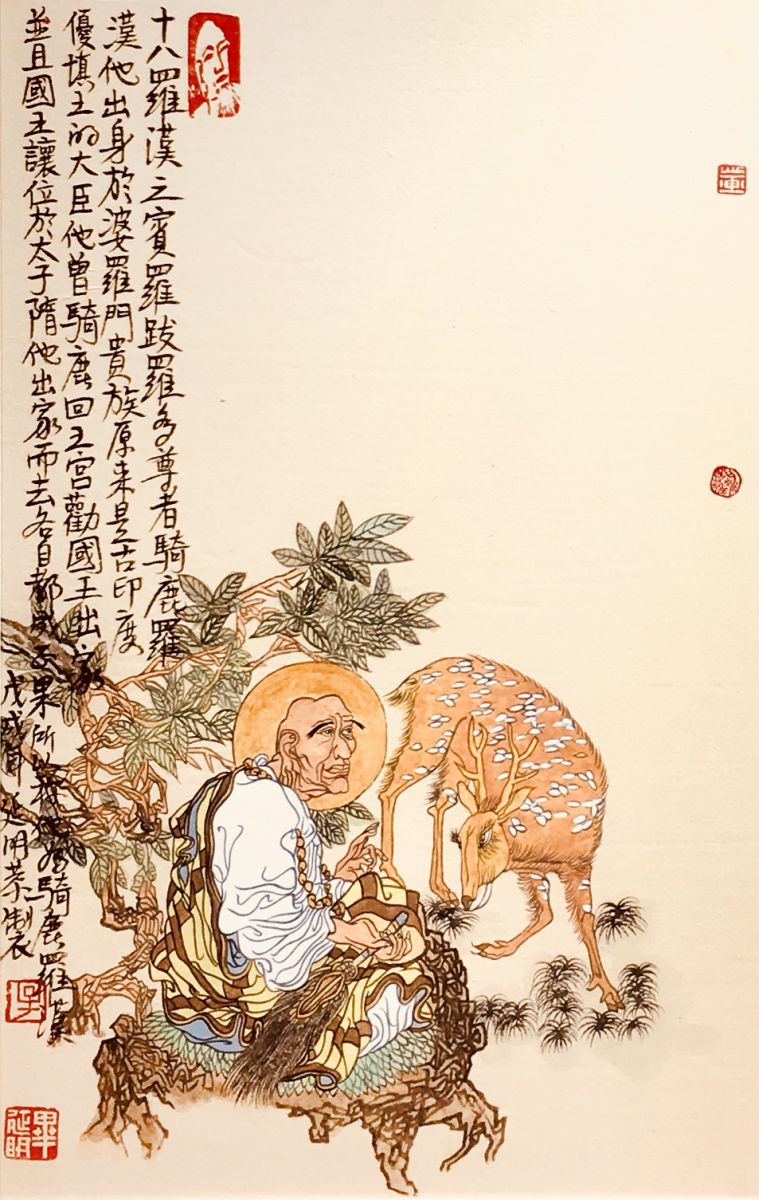 十八羅漢之賓羅跋羅多尊者騎鹿羅
漢他出身於婆羅門貴族原来是古印度
優填王的大臣他曾騎鹿回王宮勸國王出家
並且國王讓位於太子隋他出家而去各自都成正果所以称他為騎鹿羅漢
戊戌年延明恭製
畢延明